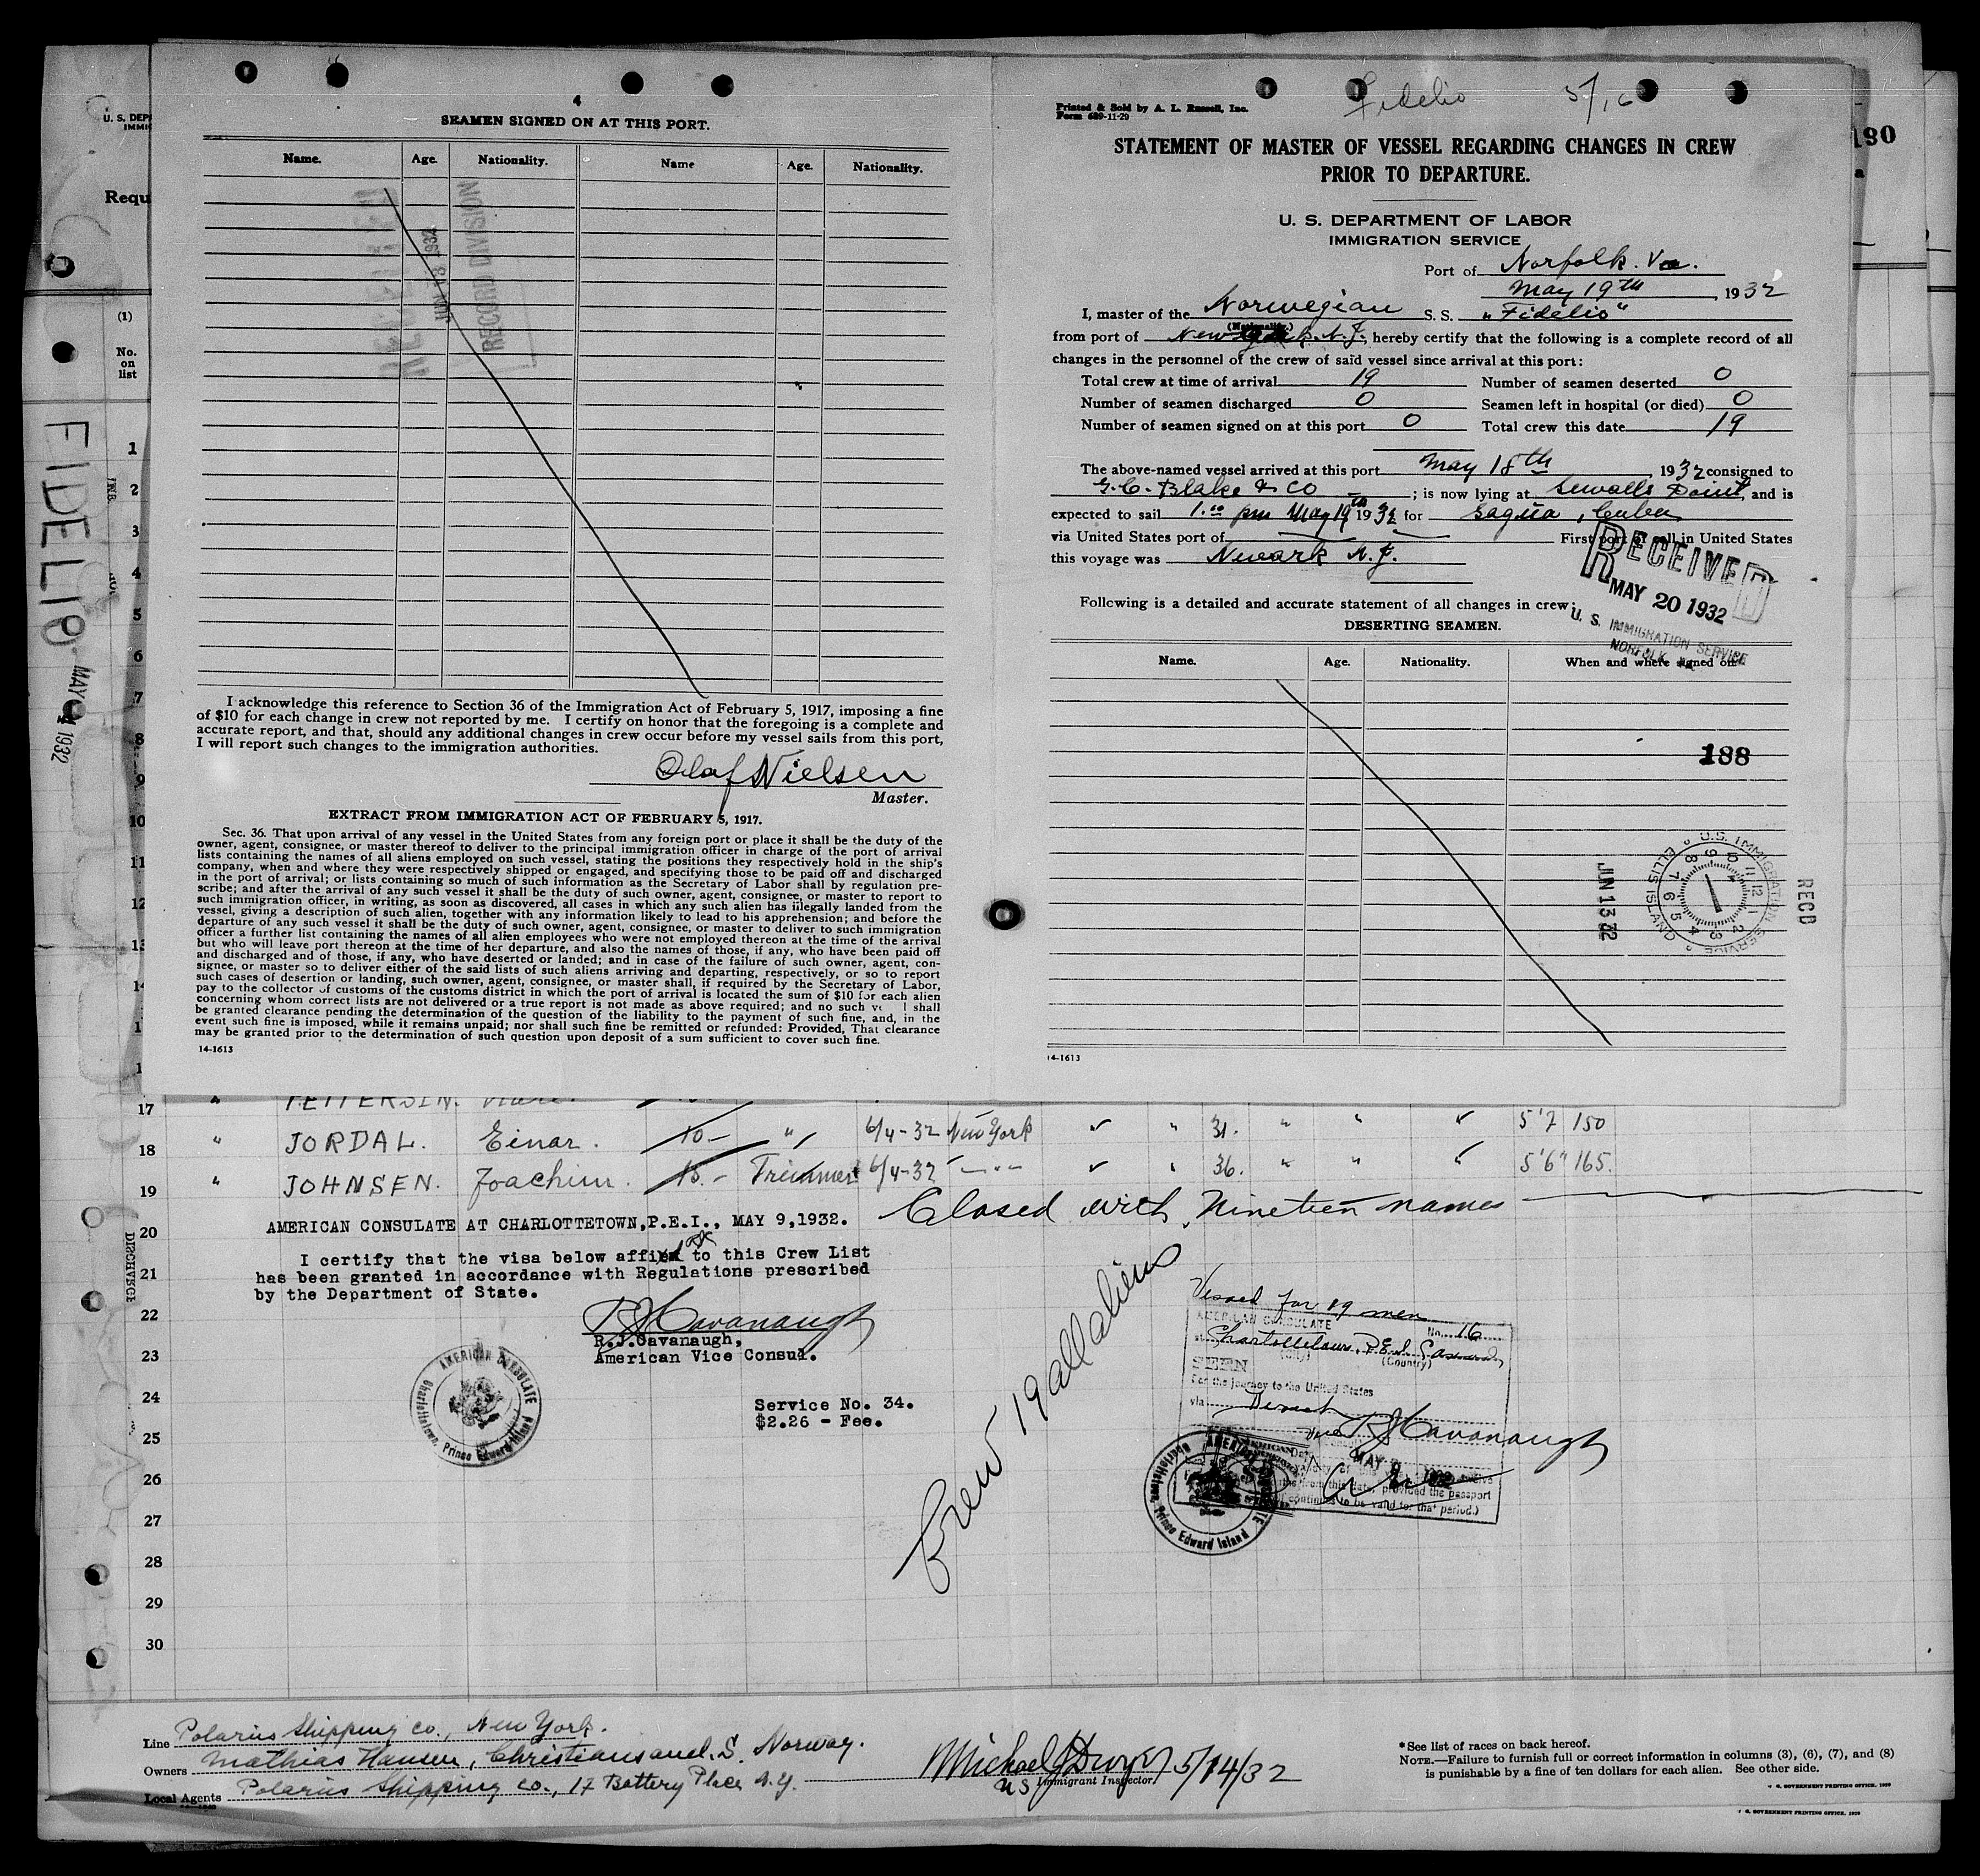 4
SEAMEN SIGNED ON AT THIS PORT.
Name. Age. Nationality. Name Age. Nationality.
RECEIVED
JUN 13 1932
RECORD DIVISION
I acknowledge this reference to Section 36 of the Immigration Act of February 5, 1917, imposing a fine
of $10 for each change in crew not reported by me. I certify on honor that the foregoing is a complete and
accurate report, and that, should any additional changes in crew occur before my vessel sails from this port,
I will report such changes to the immigration authorities.
Olaf Nielsen
Master.
EXTRACT FROM IMMIGRATION ACT OF FEBRUARY 5, 1917.
Sec. 36. That upon arrival of any vessel in the United States from any foreign port or place it shall be the duty of the
owner, agent, consignee, or master thereof to deliver to the principal immigration officer in charge of the port of arrival
lists containing the names of all aliens employed on such vessel, stating the positions they respectively hold in the ship's
company, when and where they were respectively shipped or engaged, and specifying those to be paid off and discharged
in the port of arrival; or lists containing so much of such information as the Secretary of Labor shall by regulation pre-
scribe; and after the arrival of any such vessel it shall be the duty of such owner, agent, consignee, or master to report to
such immigration officer, in writing, as soon as discovered, all cases in which any such alien has illegally landed from the
vessel, giving a description of such alien, together with any information likely to lead to his apprehension; and before the
departure of any such vessel it shall be the duty of such owner, agent, consignee, or master to deliver to such immigration
officer a further list containing the names of all alien employees who were not employed thereon at the time of the arrival
but who will leave port thereon at the time of her departure, and also the names of those, if any, who have been paid off
and discharged and of those, if any, who have deserted or landed; and in case of the failure of such owner, agent, con-
signee, or master so to deliver either of the said lists of such aliens arriving and departing, respectively, or so to report
such cases of desertion or landing, such owner, agent, consignee, or master shall, if required by the Secretary of Labor,
pay to the collector of customs of the customs district in which the port of arrival is located the sum of $10 for each alien
concerning whom correct lists are not delivered or a true report is not made as above required; and no such v l shall
be granted clearance pending the determination of the question of the liability to the payment of such fine, and, in the
event such fine is imposed, while it remains unpaid; nor shall such fine be remitted or refunded: Provided, That clearance
may be granted prior to the determination of such question upon deposit of a sum sufficient to cover such fine.
14-1613
Printed & Sold by A. L. Russell, Inc.
Form 689-11-29
Fidelio 5/16
STATEMENT OF MASTER OF VESSEL REGARDING CHANGES IN CREW
PRIOR TO DEPARTURE.
U. S. DEPARTMENT OF LABOR
IMMIGRATION SERVICE
Port of Norfolk. Va.
May 19th, 1932
I, master of the Norwegian S. S. "Fidelio"
(Nationality.)
from port of N. J., hereby certify that the following is a complete record of all
changes in the personnel of the crew of said vessel since arrival at this port:
Total crew at time of arrival 19 Number of seamen deserted 0
Number of seamen discharged 0 Seamen left in hospital (or died) 0
Number of seamen signed on at this port 0 Total crew this date 19
The above-named vessel arrived at this port May 18th, 1932 consigned to
G. C. Blake & Co; is now lying at Sewalls Point, and is
expected to sail 1.00 pm May 19th 1932 for Sagua, Cuba
via United States port of First port of call in United States
this voyage was Newark N. J.
RECEIVED
MAY 20 1932
U. S. IMMIGRATION SERVICE
NORFOLK VA
Following is a detailed and accurate statement of all changes in crew:
DESERTING SEAMEN.
Name. Age. Nationality. When and where signed on.
188
U.S. IMMIGRATION SERVICE
ELLIS ISLAND
JUN 13 32
RECD
14-1613
190
U. S. DEP
IMMI
Requ
(1)
No.
on
list
FIDELIO
MAY 1932
1
2
3
4
5
6
7
8
9
10
11
12
13
14
1
1
17 " PETTERSEN.
18 " JORDAL. Einar. 10- " 6/4-32 New York ✓ " 31. " " ✓ 5'7 150
19 " JOHNSEN. Joachim. 10.- Trimmer 6/4-32 -"- ✓ " 36. " " ✓ 5'6" 165.
Closed with Nineteen names
20 AMERICAN CONSULATE AT CHARLOTTETOWN,P.E.I., MAY 9,1932.
I certify that the visa below affixed to this Crew List
21 has been granted in accordance with Regulations prescribed
by the Department of State.
22 R J Cavanaugh
R.J.Cavanaugh,
23 American Vice Consul.
AMERICAN CONSULATE
Charlottetown, Prince Edward Island
24 Service No. 34.
$2.26 - Fee.
25
26
27
28
29
30
DISCHARGE
Crew 19 all aliens
Visaed for 19 men
AMERICAN CONSULATE No. 16
at Charlottetown, P.E.I. Canada
(City) (Country)
SEEN
For the journey to the United States
via Direct
Vice R J Cavanaugh
MAY 9 1932
from this date, provided the passport
continues to be valid for that period.)
AMERICAN CONSULATE
Charlottetown, Prince Edward Island
Line Polarius Shipping Co., New York.
Owners Mathias Hansen, Christiansand. S. Norway.
Local Agents Polarius Shipping Co., 17 Battery Place N.Y.
Michael J Dwyer 5/14/32
US Immigrant Inspector
*See list of races on back hereof.
NOTE.—Failure to furnish full or correct information in columns (3), (6), (7), and (8)
is punishable by a fine of ten dollars for each alien. See other side.
GOVERNMENT PRINTING OFFICE.
GOVERNMENT PRINTING OFFICE.